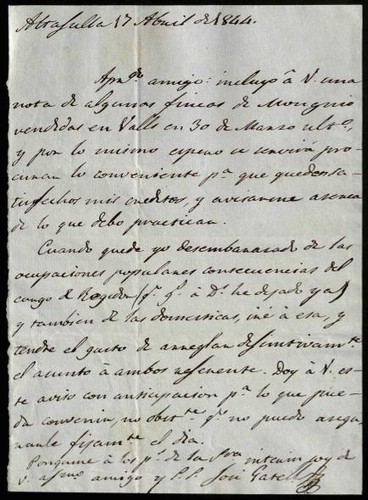 Altafulla 17 Abril de 1844.
Apre.do amigo: incluyo à V. una
nota de algunas fincas de Monguio
vendidas en Valls en 30 de Marzo ult.o,
y por lo mismo espero se servirá pro-
curar lo conveniente p.a que queden sa-
tisfechos mis creditos, y avisarme acerca
de lo que debo practicar.
Cuando quede yo desembarazado de las
ocupaciones populares consecuencias del
cargo de Regidor (q.e g.s à D.s he dejado ya)
y tambien de las domesticas, iré à esa, y
tendré el gusto de arreglar definitivam.te
el asunto à ambos referente. Doy à V. es-
te aviso con anticipacion p.a lo que pue-
da convenir, no obst.te q.e no puedo asegu-
rarle fijam.te el dia.
Pongame à los p.s de la Sra interin soy de
V. af.mo amigo y S.S. José Gatell